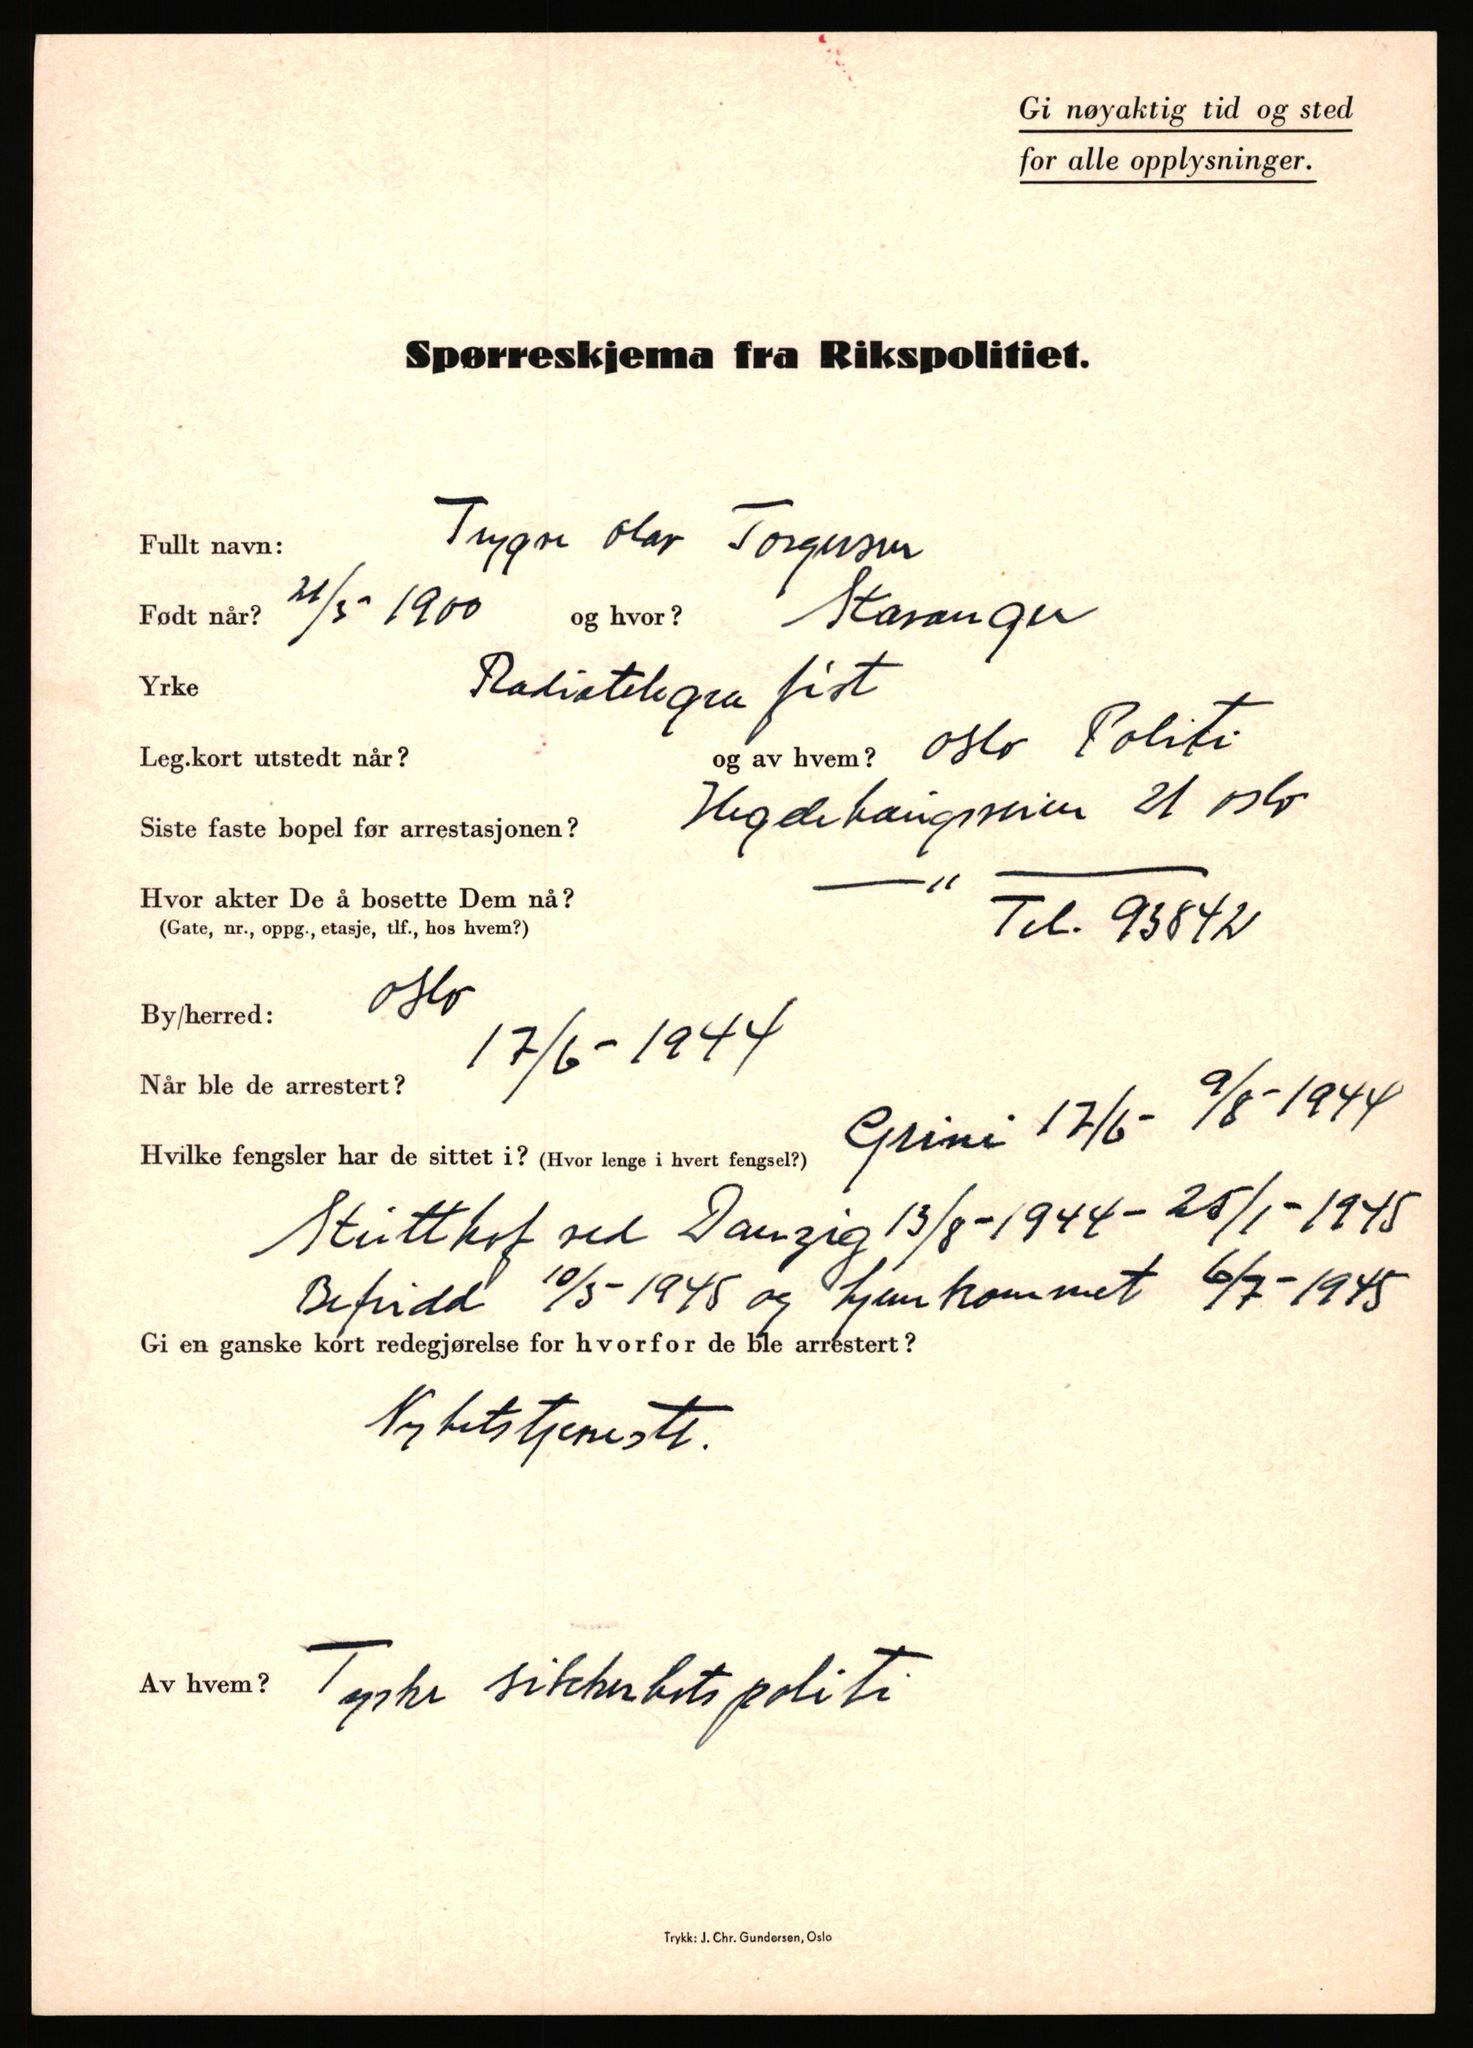 Gi nøyaktig tid og sted
for alle opplysninger.
Spørreskjema fra Rikspolitiet.
Fullt navn: Trygve Olav Torgersen
Født når? 21/3-1900 og hvor? Stavanger
Yrke Radiotelegrafist
Leg.kort utstedt når? og av hvem? Oslo Politi
Siste faste bopel før arrestasjonen? Hegdehaugsveien 21 Oslo
Hvor akter De å bosette Dem nå? — " —
(Gate, nr., oppg., etasje, tlf., hos hvem?) Tel. 93842
By/herred: Oslo
Når ble de arrestert? 17/6-1944
Hvilke fengsler har de sittet i? (Hvor lenge i hvert fengsel?) Grini 17/6- 9/8-1944
Stutthof ved Danzig 13/8-1944-25/1-1945
Befridd 10/5-1945 og hjemkommet 6/7-1945
Gi en ganske kort redegjørelse for hvorfor de ble arrestert?
Nyhetstjeneste.
Av hvem? Tyske sikkerhetspoliti
Trykk: J. Chr. Gundersen, Oslo